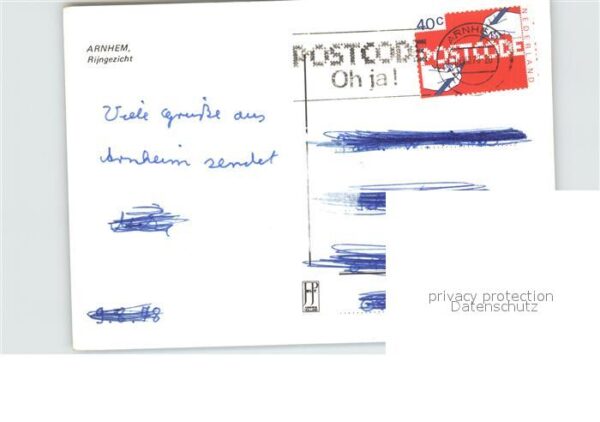 ARNHEM,
Rijngezicht
POSTCODE
Oh ja!
40c
NEDERLAND
ARNHEM
POSTCODE
Viele Grüße aus
Arnheim sendet
9.8.78
privacy protection
Datenschutz